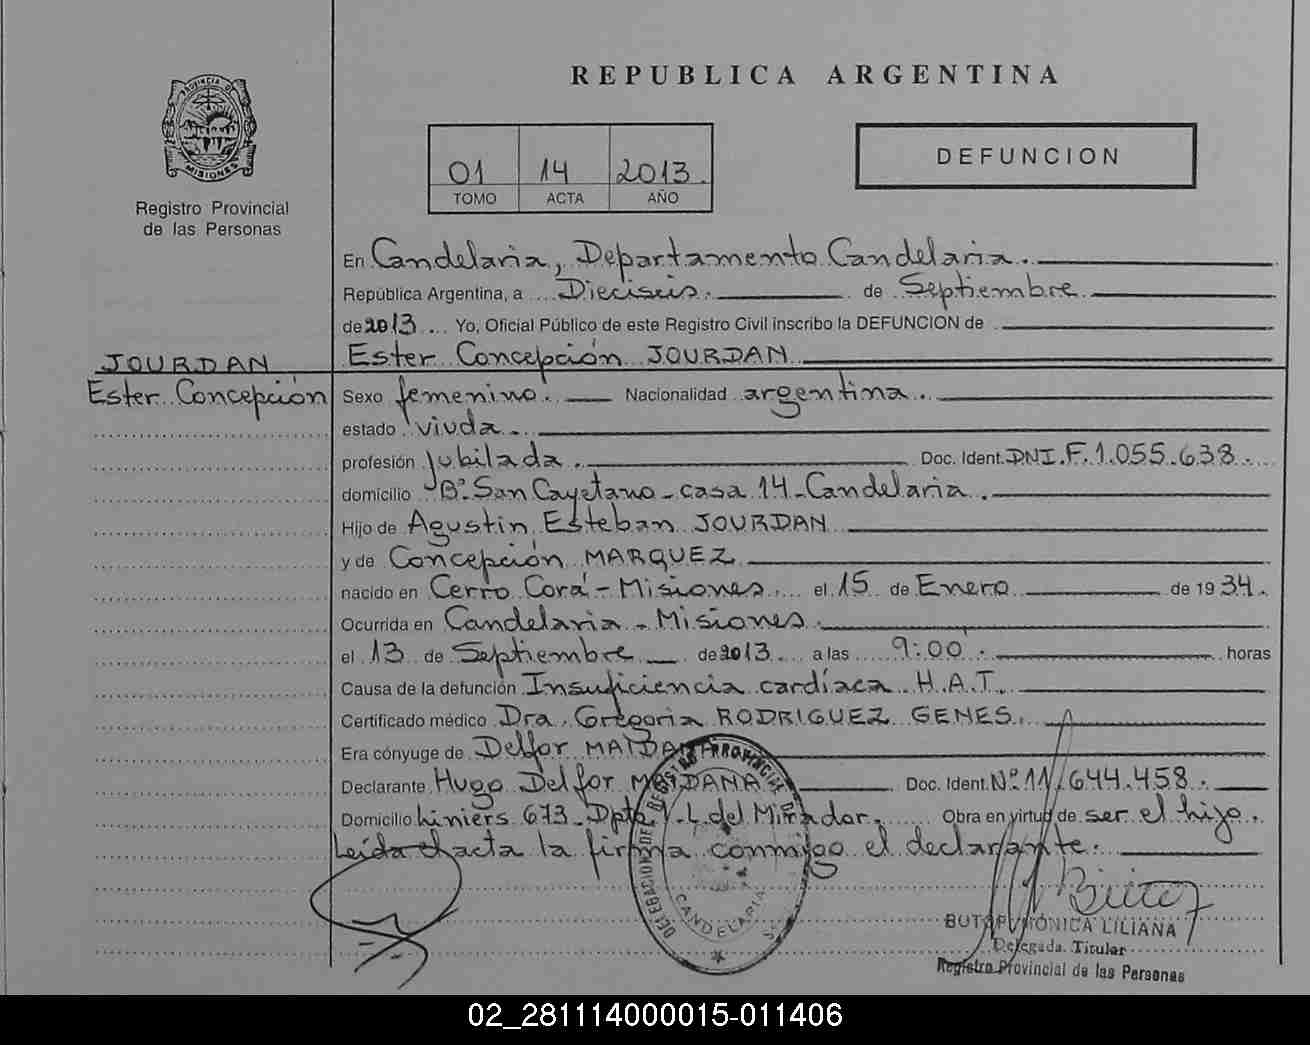 REPUBLICA ARGENTINA
PROVINCIA DE
MISIONES
Registro Provincial
de las Personas
01 14 2013.
TOMO ACTA AÑO
DEFUNCION
En Candelaria, Departamento Candelaria.
República Argentina, a Dieciseis. de Septiembre
de 2013 Yo, Oficial Público de este Registro Civil inscribo la DEFUNCION de
JOURDAN
Ester Concepción JOURDAN
Ester Concepción
Sexo femenino. Nacionalidad argentina.
estado viuda.
profesión Jubilada. Doc. Ident. DNI.F.1.055.638.
domicilio Bº San Cayetano - casa 14 - Candelaria.
Hijo de Agustin Esteban JOURDAN
y de Concepción MARQUEZ
nacido en Cerro Corá - Misiones. el 15 de Enero de 1934.
Ocurrida en Candelaria - Misiones.
el 13 de Septiembre de 2013 a las 9:00. horas
Causa de la defunción Insuficiencia cardíaca H.A.T.
Certificado médico Dra. Gregoria RODRIGUEZ GENES.
Era cónyuge de Delfor MAIDANA
Declarante Hugo Delfor MAIDANA Doc. Ident. Nº 11.644.458.
Domicilio Liniers 673 - Dpto L. del Mirador. Obra en virtud de ser el hijo.
Leída el acta la firma conmigo el declarante.
REGISTRO PROVINCIAL DE
CANDELARIA
MÓNICA LILIANA
Delegada Titular
Registro Provincial de las Personas
02_281114000015-011406